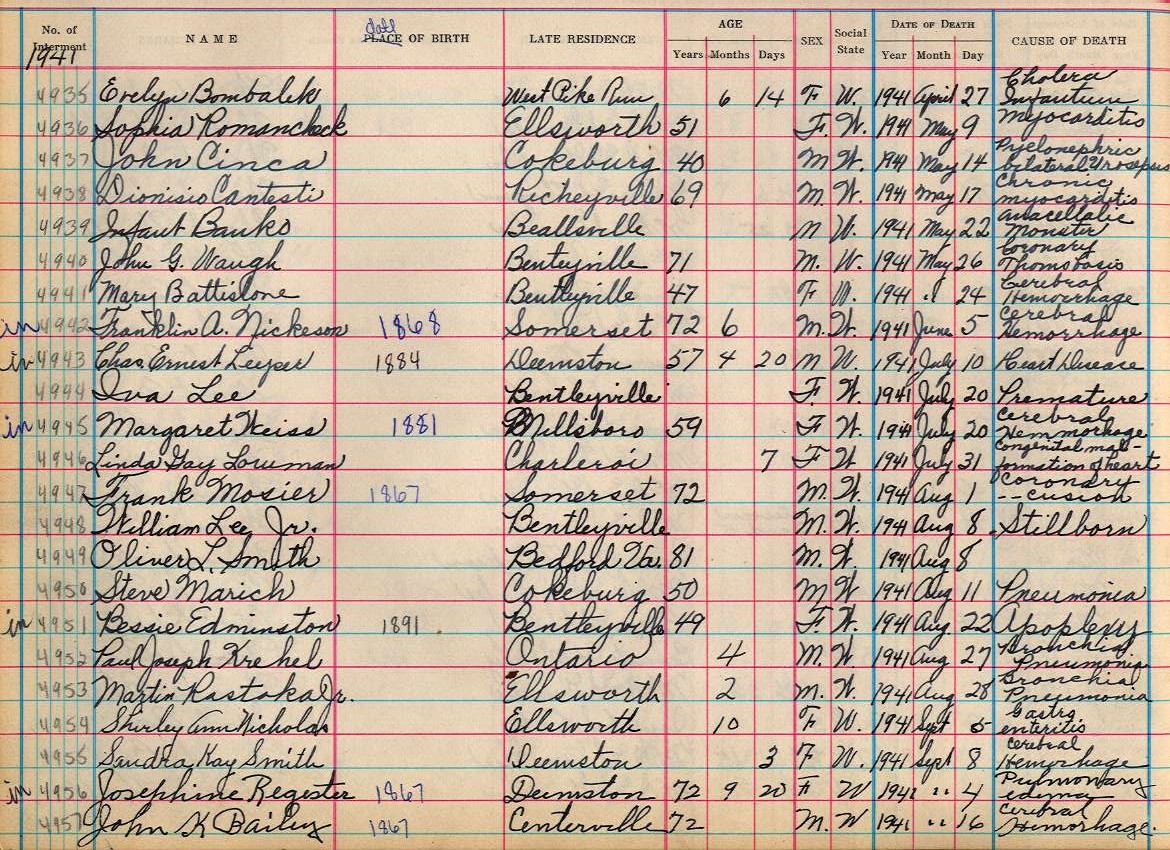 No. of Interment NAME date PLACE OF BIRTH LATE RESIDENCE AGE Years Months Days SEX Social State DATE OF DEATH Year Month Day CAUSE OF DEATH
1941
4935 Evelyn Bombalek West Pike Run 6 14 F W. 1941 April 27 Cholera Infantum
4936 Sophia Romancheck Ellsworth 51 F. W. 1941 May 9 Myocarditis
4937 John Cinca Cokeburg 40 M W. 1941 May 14 Pyelonephric bilateral Urosepsis
4938 Dionisio Cantesti Richeyville 69 M. W. 1941 May 17 Chronic myocarditis
4939 Infant Banko Beallsville M W. 1941 May 22 Monster
4940 John G. Waugh Bentleyville 71 M. W. 1941 May 26 Coronary Thombosis
4941 Mary Battistone Bentleyville 47 F W. 1941 " 24 Cerebral Hemorrhage
in 4942 Franklin A. Nickeson 1868 Somerset 72 6 M. W. 1941 June 5 Cerebral Hemorrhage
in 4943 Chas. Ernest Leyper 1884 Deemston 57 4 20 M W. 1941 July 10 Heart Disease
4944 Iva Lee Bentleyville F. W. 1941 July 20 Premature
in 4945 Margaret Weiss 1881 Millsboro 59 F W. 1941 July 20 Cerebral Hemmorhage
4946 Linda Gay Lowman Charleroi 7 F W 1941 July 31 Congenital mal- formation of heart
4947 Frank Mosier 1867 Somerset 72 M. W. 1941 Aug 1 Coronary --cusion
4948 William Lee Jr. Bentleyville M. W. 1941 Aug 8 Stillborn
4949 Oliver L. Smith Bedford Va. 81 M. W. 1941 Aug 8
4950 Steve Marich Cokeburg 50 M W 1941 Aug 11 Pneumonia
in 4951 Bessie Edminston 1891. Bentleyville 49 F. W. 1941 Aug. 22 Apoplexy
4952 Paul Joseph Krehel Ontario 4 M. W. 1941 Aug 27 Bronchial Pneumonia
4953 Martin Rastoka Jr. Ellsworth 2 M. W. 1941 Aug 28 Bronchial Pneumonia
4954 Shirley Ann Nicholas Ellsworth 10 F W. 1941 Sept 5 Gastro enteritis
4955 Sandra Kay Smith Deemston 3 F W. 1941 Sept 8 Cerebral Hemorrhage
in 4956 Josephine Regester 1867 Deemston 72 9 20 F W 1941 " 4 Pulmonary edema
4957 John K Bailey 1867 Centerville 72 M. W 1941 " 16 Cerebral Hemorrhage.